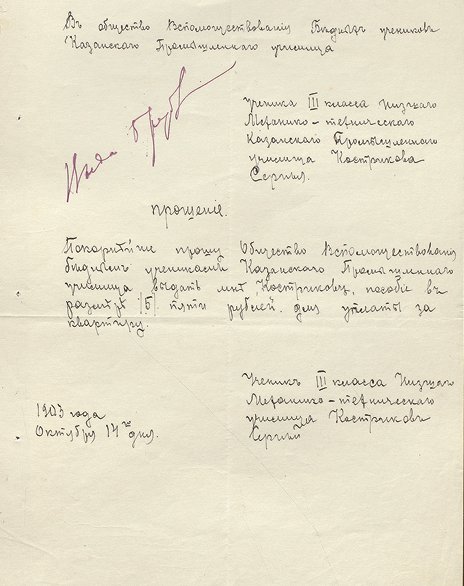 Въ общество Вспомоществованія Бѣднымъ учениковъ
Казанскаго Промышленнаго училища
Ученика III класса Низшаго
Механико-техническаго
Казанскаго Промышленного
училища Кострикова
Сергѣя.
прошеніе.
Покорнѣйше прошу Общество Вспомоществованія
бѣднымъ ученикамъ Казанскаго Промышленнаго
училища выдать мнѣ Кострикову, пособіе въ
размѣрѣ |5| пяти рублей. для уплаты за
квартиру.
Ученикъ III класса Низшаго
Механико-техническаго
училища Костриковъ
Сергѣй
1903 года
Октября 14го дня.